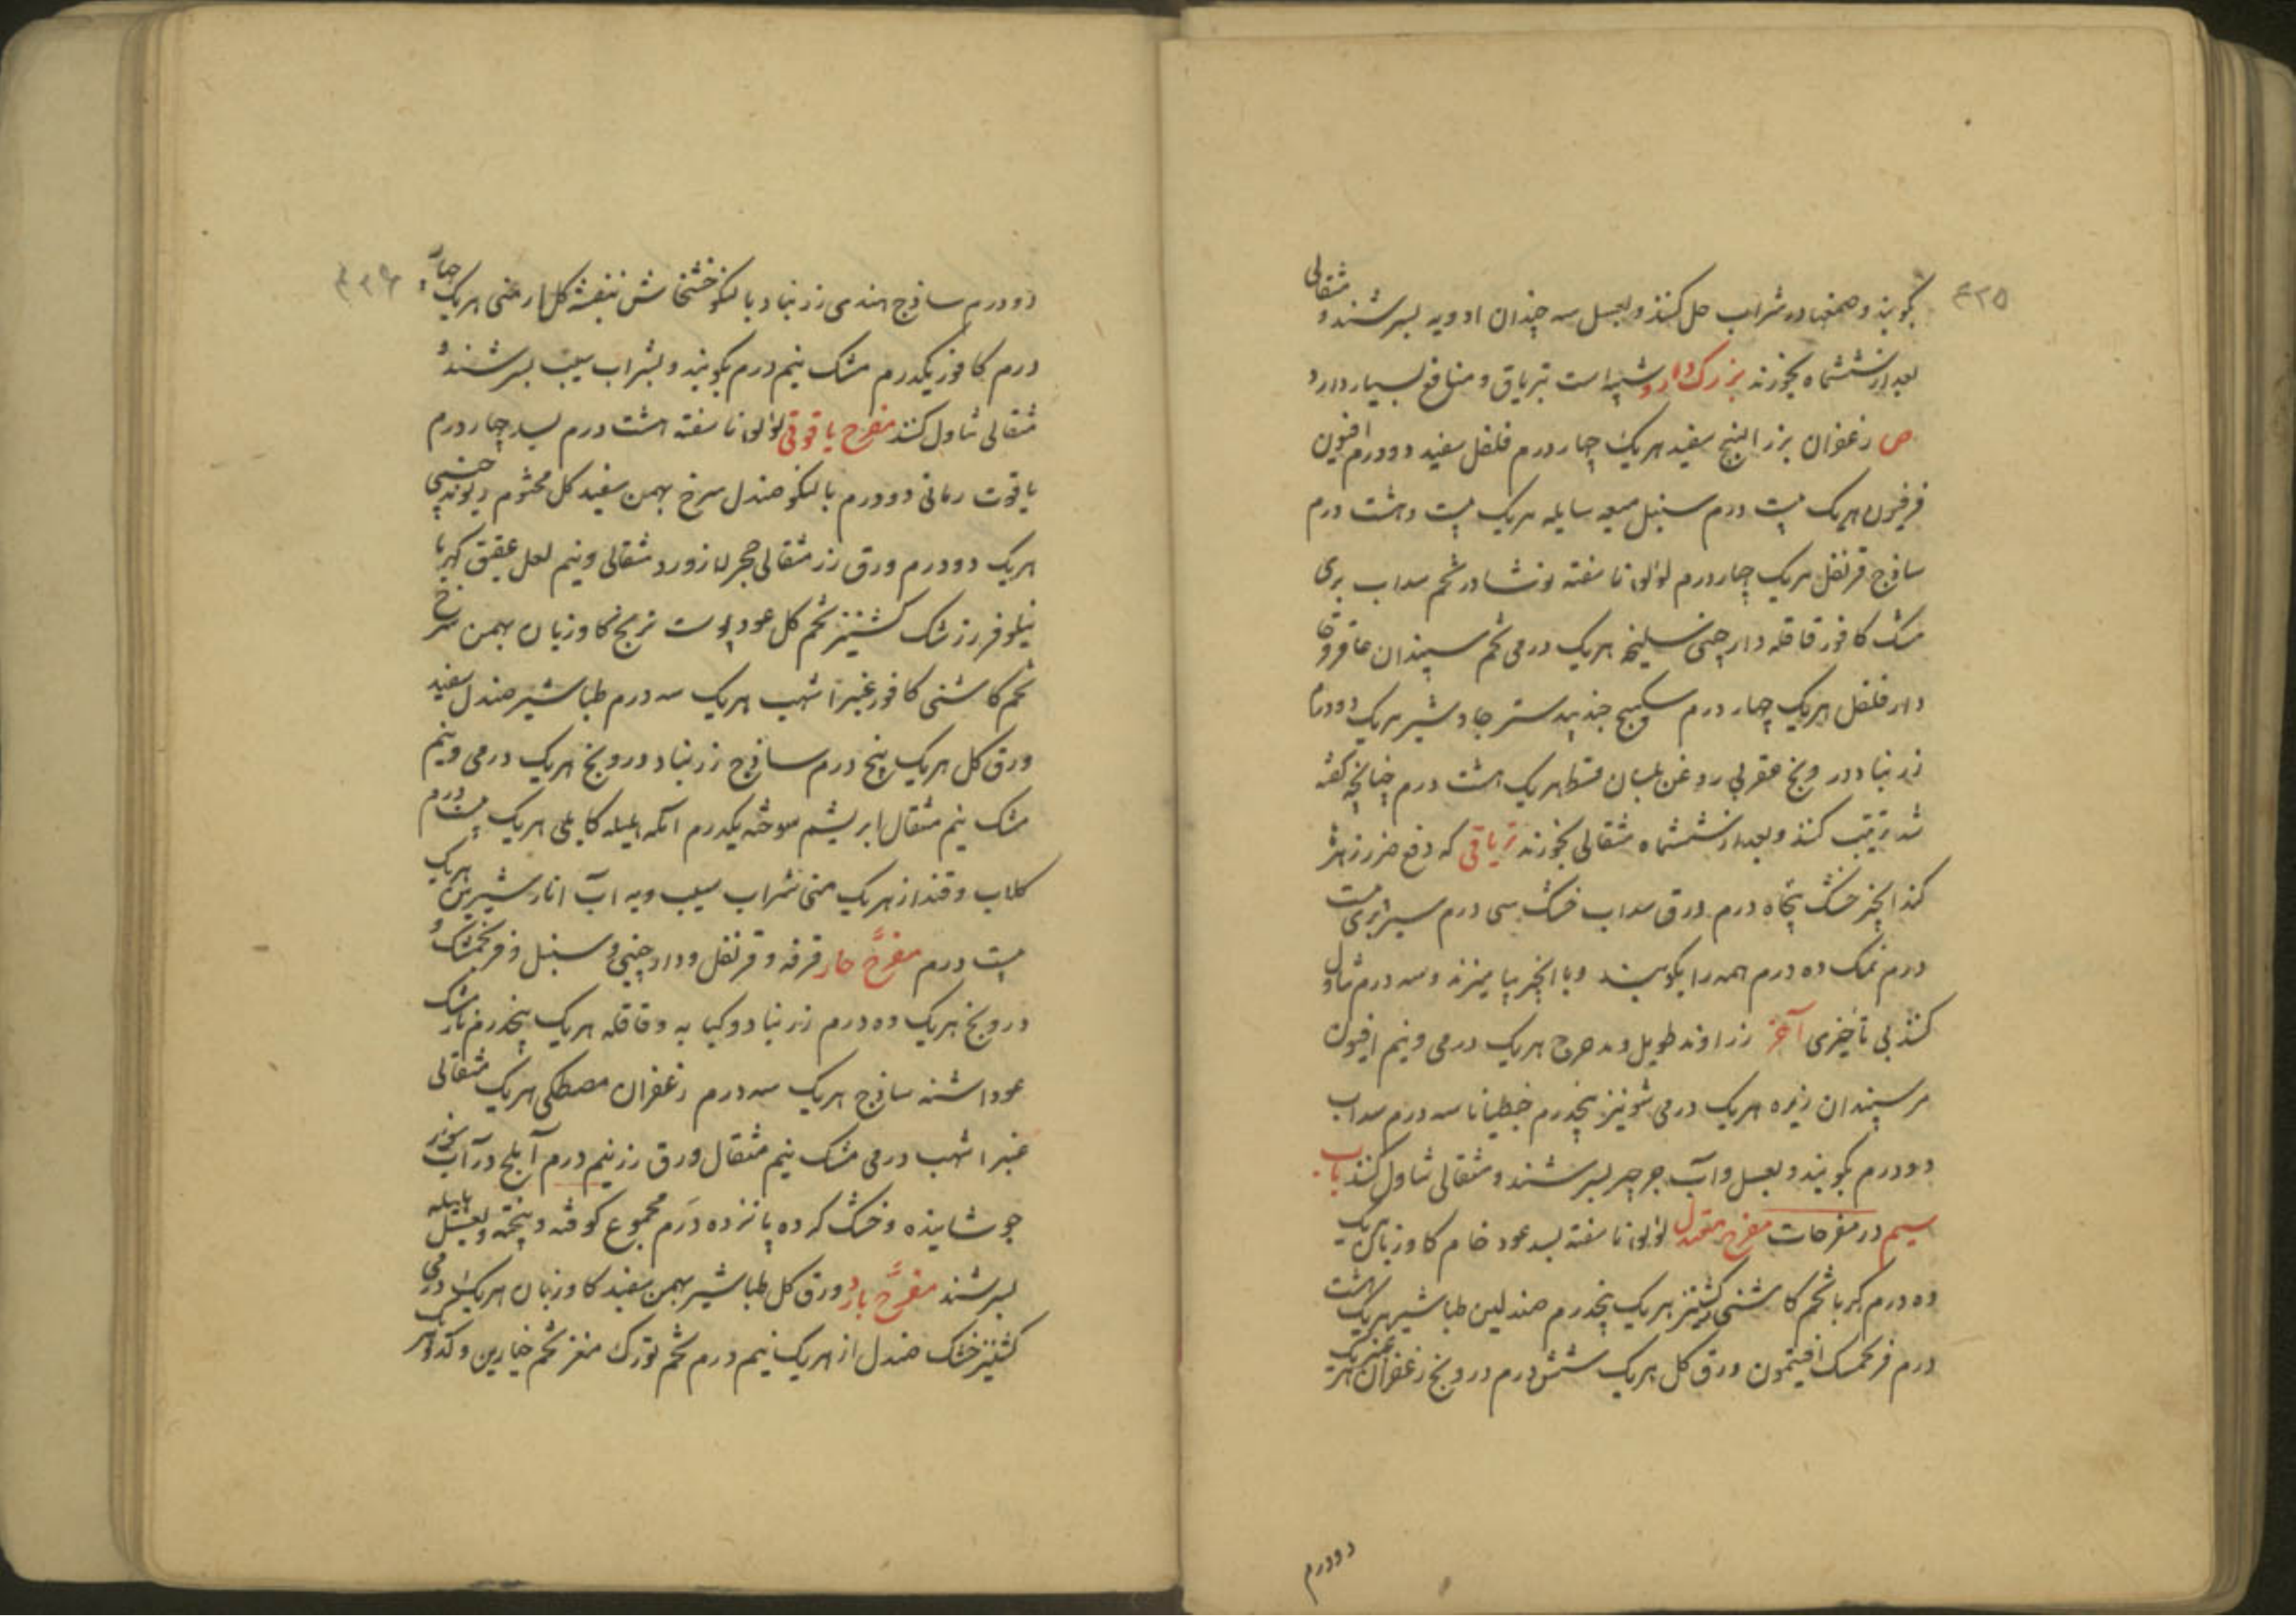 ۴۲۵
بکوبند و صمغها در شراب حل کنند و بعسل سه چندان ادویه بسرشند و مثقالی
بعد از ششماه بخورند بزرک دارو شبیه است بتریاق و منافع بسیار دارد
ص زعفران بزر البنج سفید هریک چهار درم فلفل سفید دو درم افیون
فرفیون هریک بیست درم سنبل میعه سایله هریک بیست و هشت درم
ساذج قرنفل هریک چهار درم لؤلؤ ناسفته نوشادر تخم سداب بری
مشک کافور قاقله دارچینی سلیخه هریک درمی تخم سپندان عاقرقرحا
دارفلفل هریک چهار درم سکبینج جندبیدستر جاوشیر هریک دو درم
زرنباد درونج عقربی روغن بلسان قسط هریک هشت درم چنانچه کفته
شد ترتیب کنند و بعد از ششماه مثقالی بخورند تریاقی که دفع ضرر زهر
کند انجیر خشک پنجاه درم ورق سداب خشک سی درم سیر بری بیست
درم نمک ده درم همه را بکوبند و با انجیر بیامیزند و سه درم تناول
کنند بی تأخیری آخر زراوند طویل و مدحرج هریک درمی و نیم افیون
مر سپندان زیره هریک درمی شونیز پنجدرم جنطیانا سه درم سداب
دو درم بکوبند و بعسل و آب جرجیر بسرشند و مثقالی تناول کنند باب
سیم در مفرحات مفرح معتدل لؤلؤ ناسفته بسد عود خام کاوزبان هریک
ده درم کهربا تخم کاشنی کشنیز هریک پنجدرم صندلین طباشیر هریک هشت
درم فرنجمشک افتیمون ورق کل هریک شش درم درونج زعفران عنبر هریک
دو درم
۴۲۶
دو درم ساذج هندی زرنباد بالنکو خشخاش بنفشه کل ارمنی هریک چهار
درم کافور یکدرم مشک نیم درم بکوبند و بشراب سیب بسرشند و
مثقالی تناول کنند مفرح یاقوتی لؤلؤ ناسفته هشت درم بسد چهار درم
یاقوت رمانی دو درم بالنکو صندل سرخ بهمن سفید کل مختوم ریوند چینی
هریک دو درم ورق زر مثقالی حجر لازورد مثقالی و نیم لعل عقیق کهربا
نیلوفر زرشک کشنیز تخم کل عود پوست ترنج کاوزبان بهمن سرخ
تخم کاشنی کافور عنبر اشهب هریک سه درم طباشیر صندل سفید
ورق کل هریک پنج درم ساذج زرنباد درونج هریک درمی و نیم
مشک نیم مثقال ابریشم سوخته یکدرم آمله هلیله کابلی هریک بیست درم
کلاب و قند از هریک منی شراب سیب و به آب انار شیرین هریک
بیست درم مفرح حار قرفه و قرنفل و دارچینی و سنبل و فرنجمشک و
درونج هریک ده درم زرنباد و کبابه و قاقله هریک پنجدرم نارمشک
عود اشنه ساذج هریک سه درم زعفران مصطکی هریک مثقالی
عنبر اشهب درمی مشک نیم مثقال ورق زر نیم درم آملج در آب
جوشانیده و خشک کرده پانزده درم مجموع کوفته و بیخته و بعسل
بسرشند مفرح بارد ورق کل طباشیر بهمن سفید کاوزبان هریک درمی
کشنیز خشک صندل از هریک نیم درم تخم تورک مغز تخم خیارین و کدو هر